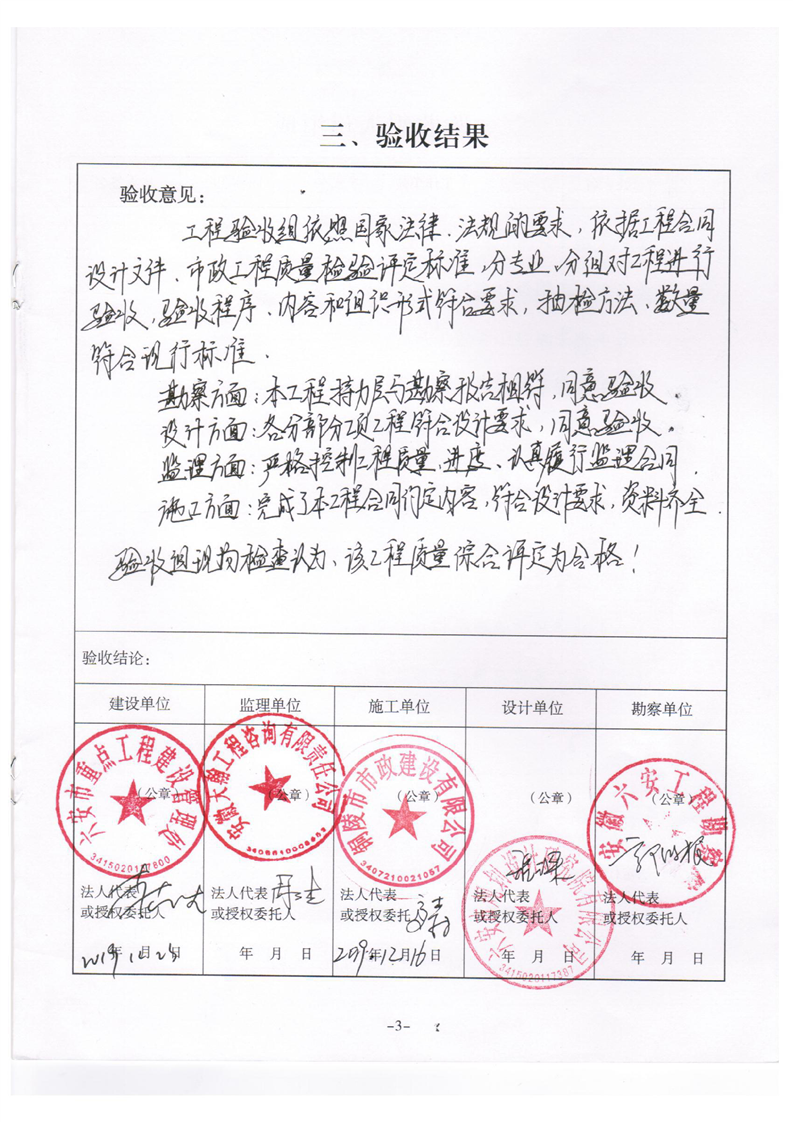 三、验收结果
验收意见：
工程验收组依照国家法律、法规的要求，依据工程合同
设计文件、市政工程质量检验评定标准，分专业，分组对工程进行
验收，验收程序、内容和组织形式符合要求，抽检方法、数量
符合现行标准.
勘察方面：本工程持力层与勘察报告相符，同意验收.
设计方面：各分部分项工程符合设计要求，同意验收。
监理方面：严格控制工程质量、进度、认真履行监理合同.
施工方面：完成了本工程合同约定内容，符合设计要求，资料齐全.
验收组现场检查认为、该工程质量综合评定为合格！
验收结论：
建设单位 监理单位 施工单位 设计单位 勘察单位
六安市重点工程建设管理处
3415020117800
安徽天翰工程咨询有限责任公司
铜陵市市政建设有限公司
3407210021057
3415020117387
安徽六安工程勘察
（公章） （公章） （公章） （公章） （公章）
法人代表 法人代表 法人代表 法人代表 法人代表
或授权委托人 或授权委托人 或授权委托人 或授权委托人 或授权委托人
年 月 日 年 月 日 2019年12月16日 年 月 日 年 月 日
-3-